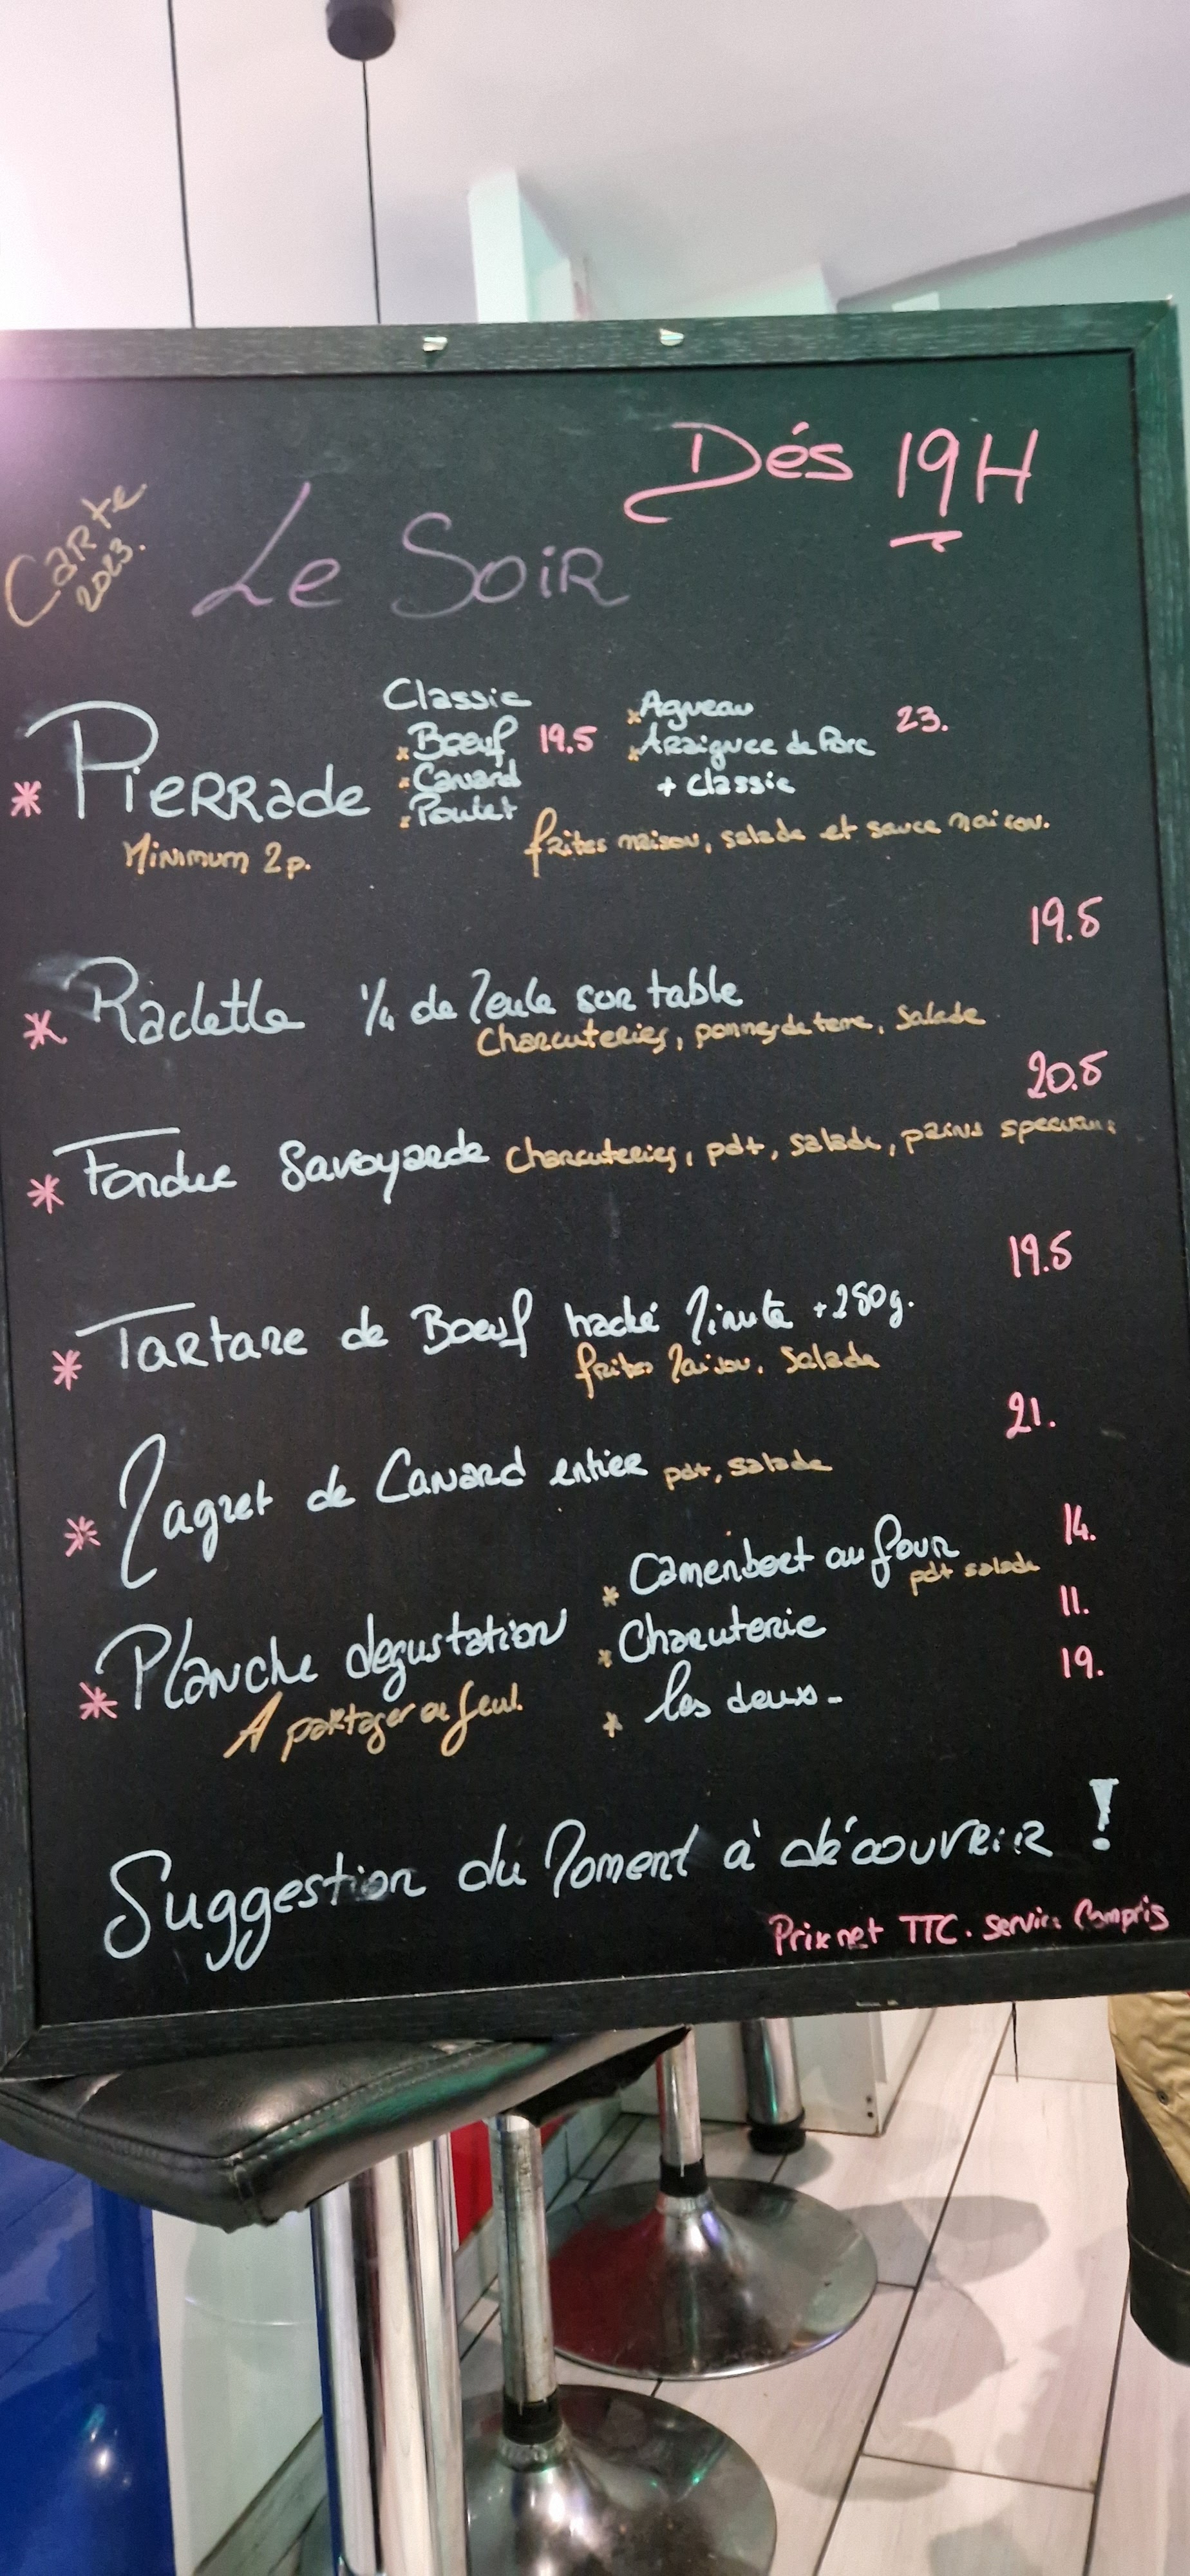 Dés 19H
Carte
2023.
Le Soir
* Pierrade
Minimum 2p.
Classic
x Boeuf 19.5
x Canard
x Poulet
x Agneau 23.
x Araignee de Porc
+ classic
frites maison, salade et sauce maison.
19.5
* Raclette 1/4 de Meule sur table
Charcuteries, pommes de terre, salade
20.5
* Fondue Savoyarde charcuteries, pdt, salade, pains speciaux
19.5
* Tartare de Boeuf haché Minute +280g.
frites Maison, Salade
21.
* Magret de Canard entier pdt, salade
* Planche dégustation
A partager ou seul.
* Camenbert au four 14.
pdt salade
* Charcuterie 11.
* les deux - 19.
Suggestion du Moment à découvrir !
Prix net TTC. Service Compris